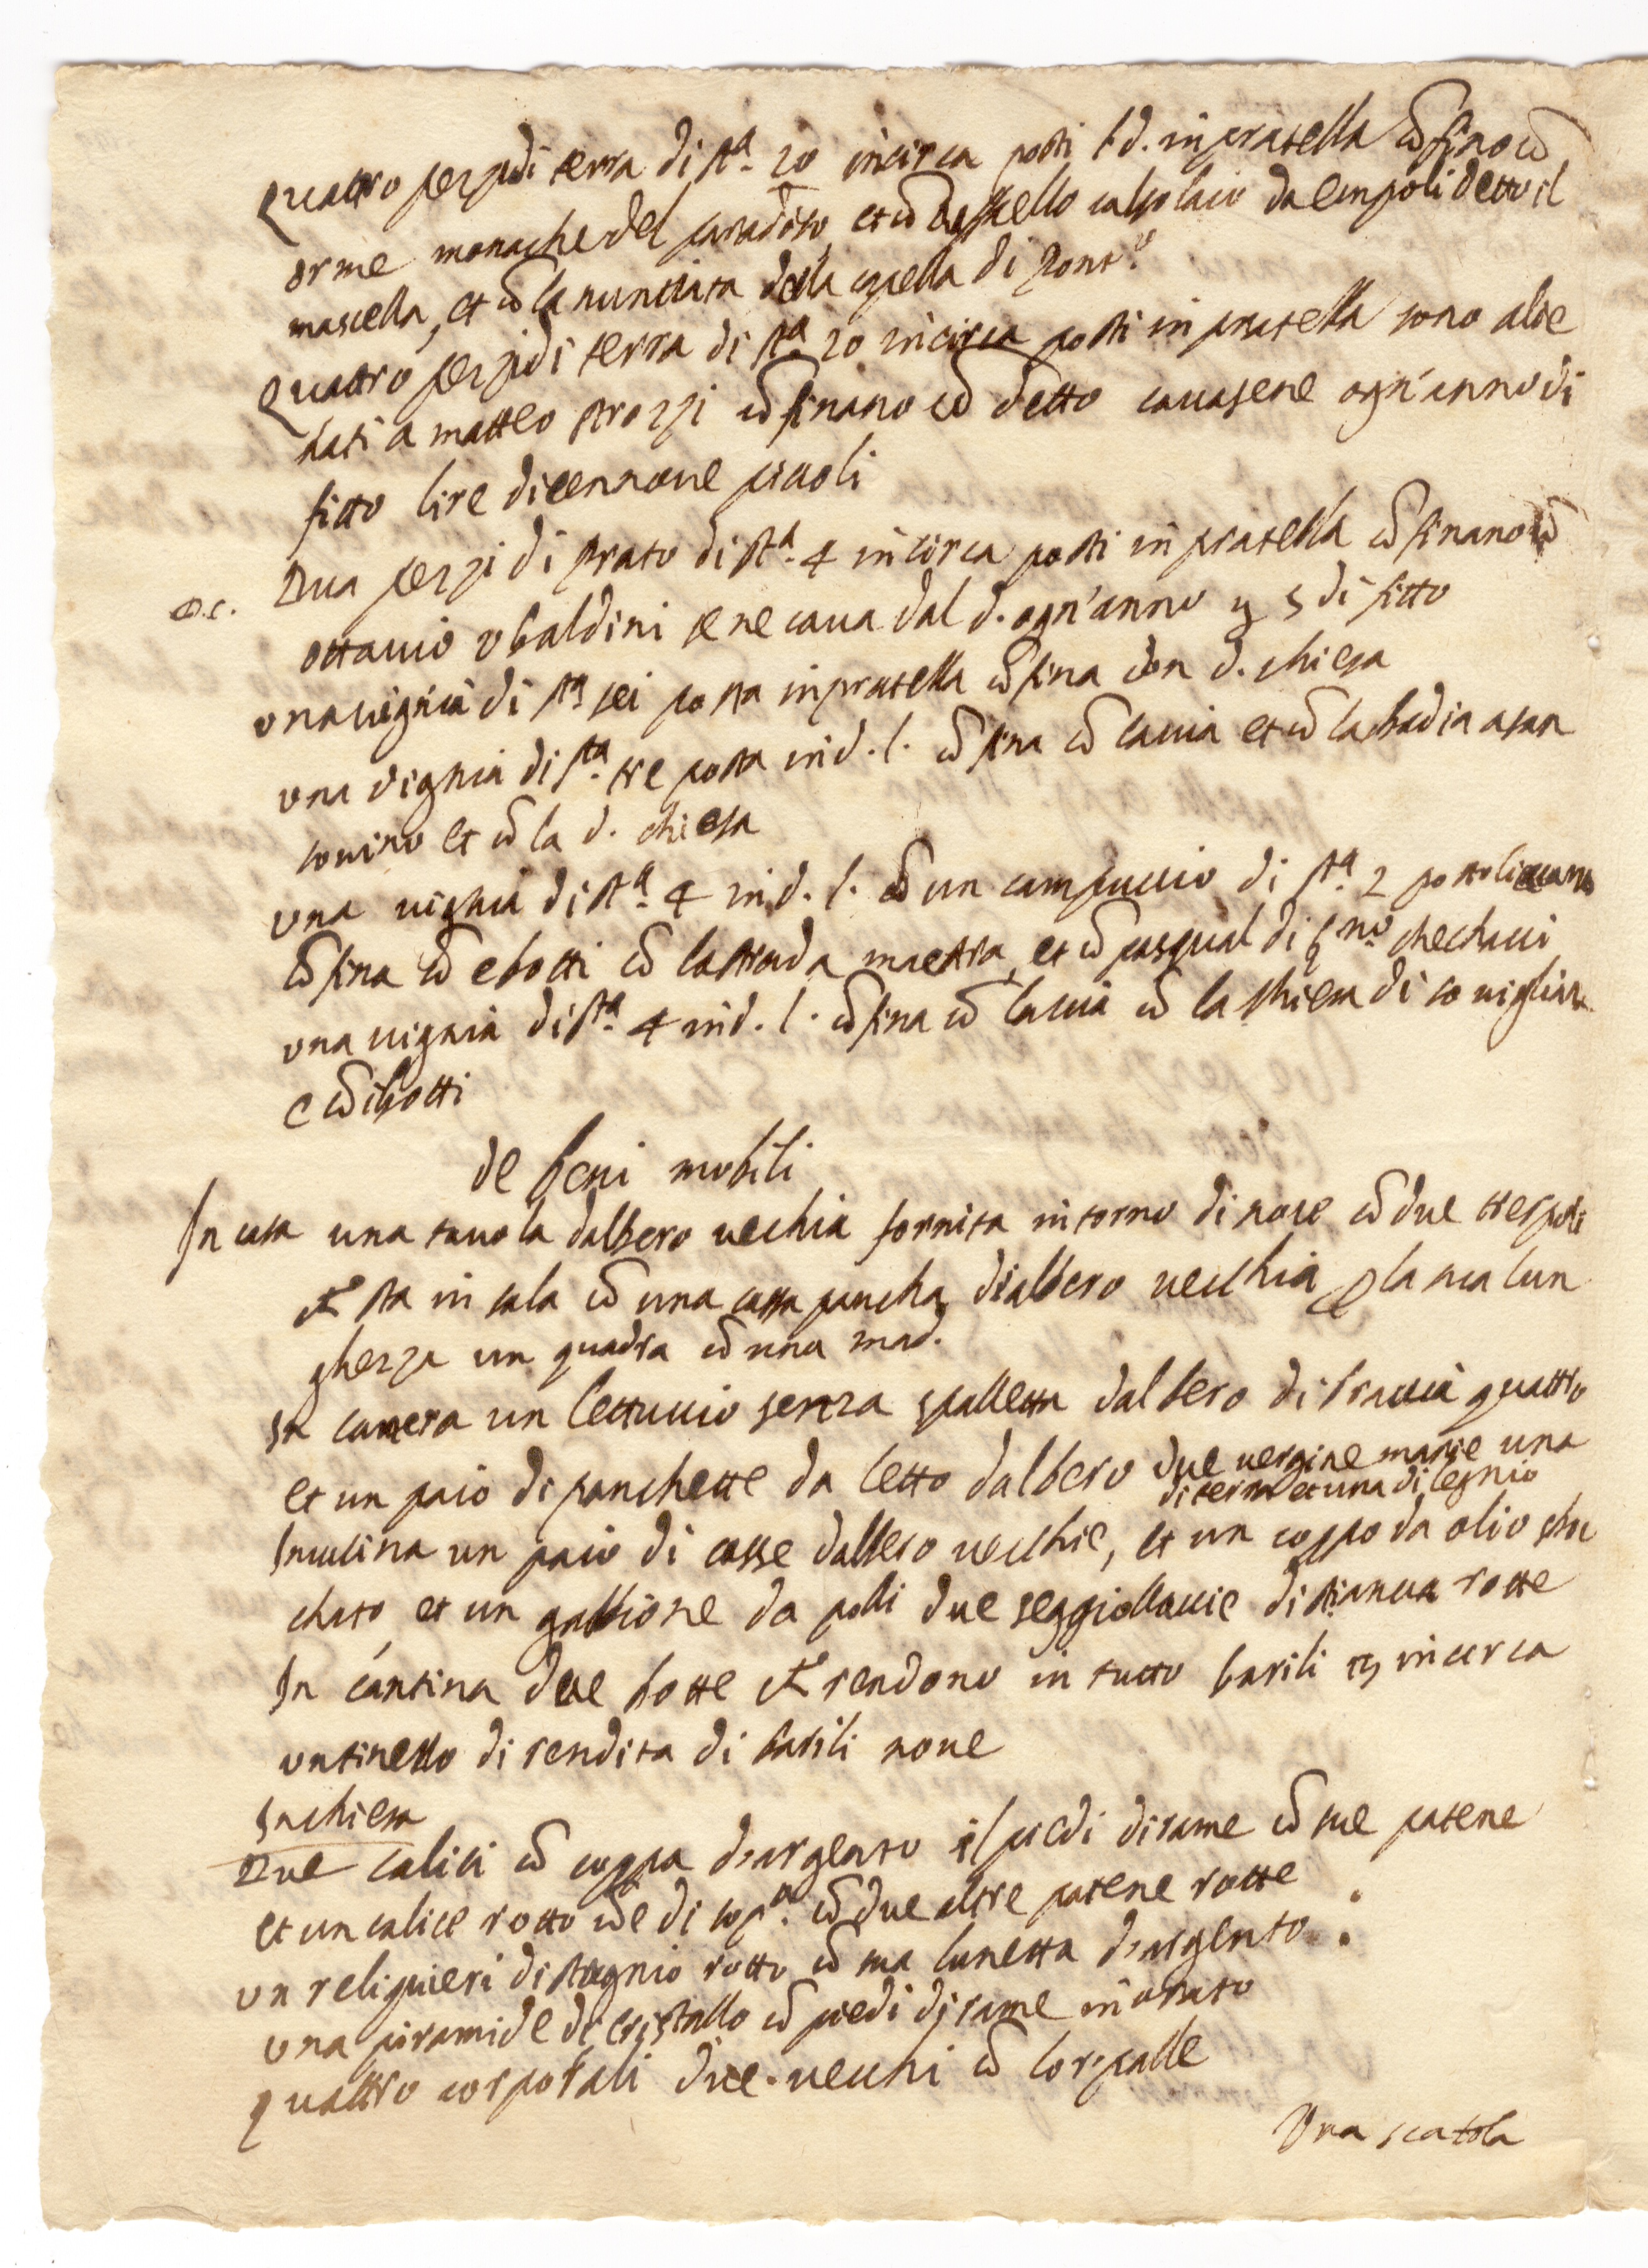 Quattro pezzi di terra di sta. 20 incirca posti l d. in pratella cō fino cō
orme monache del paradiso, et cō calzolaio da empoli detto il
mascella, et cō la nuntiata della capella di
Quattro pezzi di terra di sta. 20 incirca posti in pratella sono
dati a matteo strozzi cō finano cō detto cauasene ogn'anno di
fitto lire dicennoue piccoli
Dua pezzi di prato di sta. 4 incirca posti in pratella cō finano cō
ottauio vbaldini se ne caua dal d. ogn'anno 5 di fitto
una uignia di sta sei posta in pratella cō fina con d. chiesa
una vignia di sta. tre posta in d. l. cō fina cō la uia et cō la badia a san
sauino et cō la d. chiesa
una vignia di sta. 4 in d. l. cō un campuccio di sta. 2 posto li
cō fina cō e botti cō la strada maestra, et cō pasqual di checchucci
una uignia di sta. 4 in d. l. cō fina cō la uia cō la chiesa di
e cō i botti
de beni mobili
In casa una tauola dalbero uechia fornita intorno di noce cō due trespoli
che sta in sala cō una cassa pancha di albero uecchia p la sua lun
ghezza un quadra cō una mad.
In camera un lettuccio senza spalletta dalbero di braccia quattro
et un paio di panchette da letto dalbero due uergine marie una
di terra et una di legnio
In cucina un paio di casse dalbero uecchie, et un coppo da olio
chato, et un gabbione da polli due seggiollaccie di stiancia rotte
In cantina due botte che rendono in tutto barili 15 incirca
un tinello di rendita di barili noue
In chiesa
Due calici cō coppa d'argento il piedi di rame cō sue patene
et un calice rotto come di sopa. cō due altre patene rotte
un reliquieri di stagnio rotto cō sua lunetta d'argento
una piramide di cristallo cō piedi di rame inorato
quattro corporali due uecchi cō lor palle
Una scatola